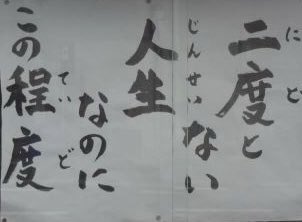 にど
二度と
ない
じんせい
人生
なのに
ていど
この程度